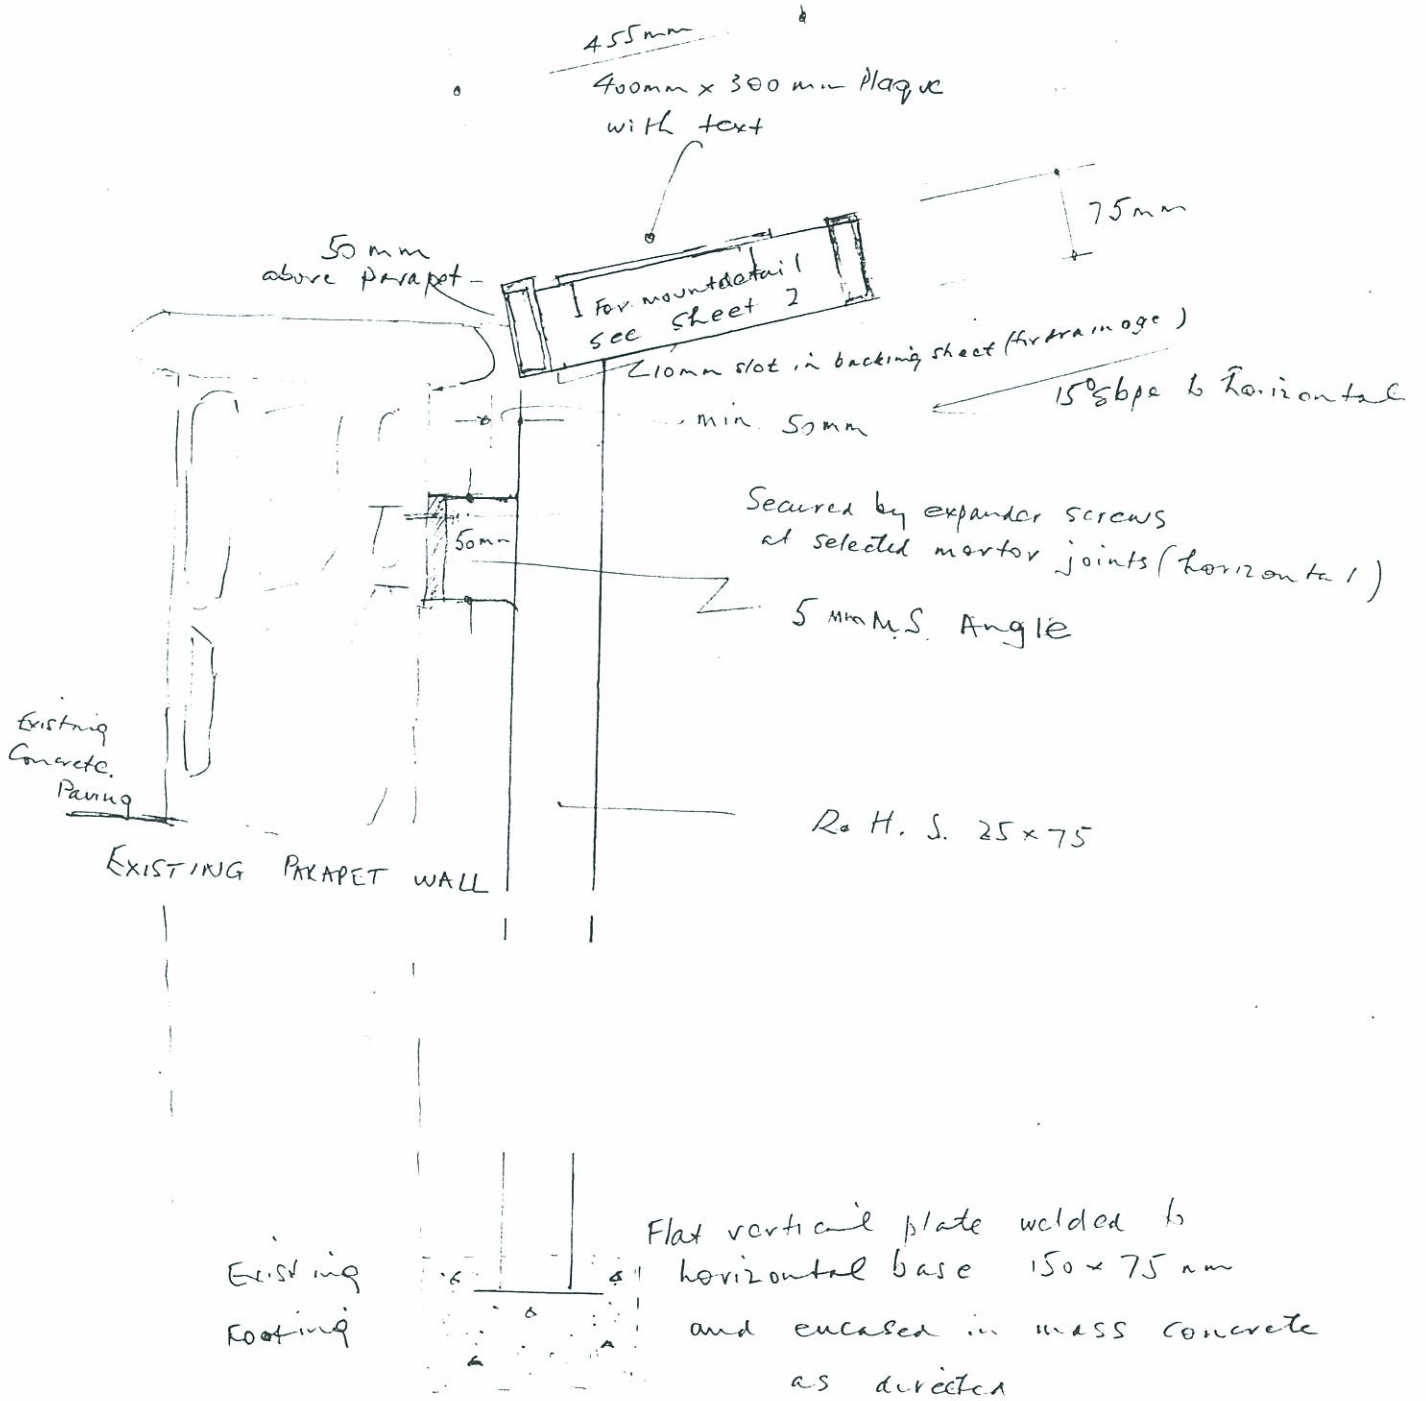 455mm
400mm x 300mm Plaque
with text
75mm
50mm
above parapet
For mount detail
see sheet 2
10mm slot in backing sheet (for drainage)
15° slope to horizontal
min. 50mm
Secured by expander screws
at selected mortor joints (horizontal)
50mm
5mm M.S. Angle
Existing
Concrete.
Paving
R.H.S. 25x75
EXISTING PARAPET WALL
Flat vertical plate welded to
horizontal base 150 x 75 mm
and encased in mass concrete
as directed
Existing
Footing